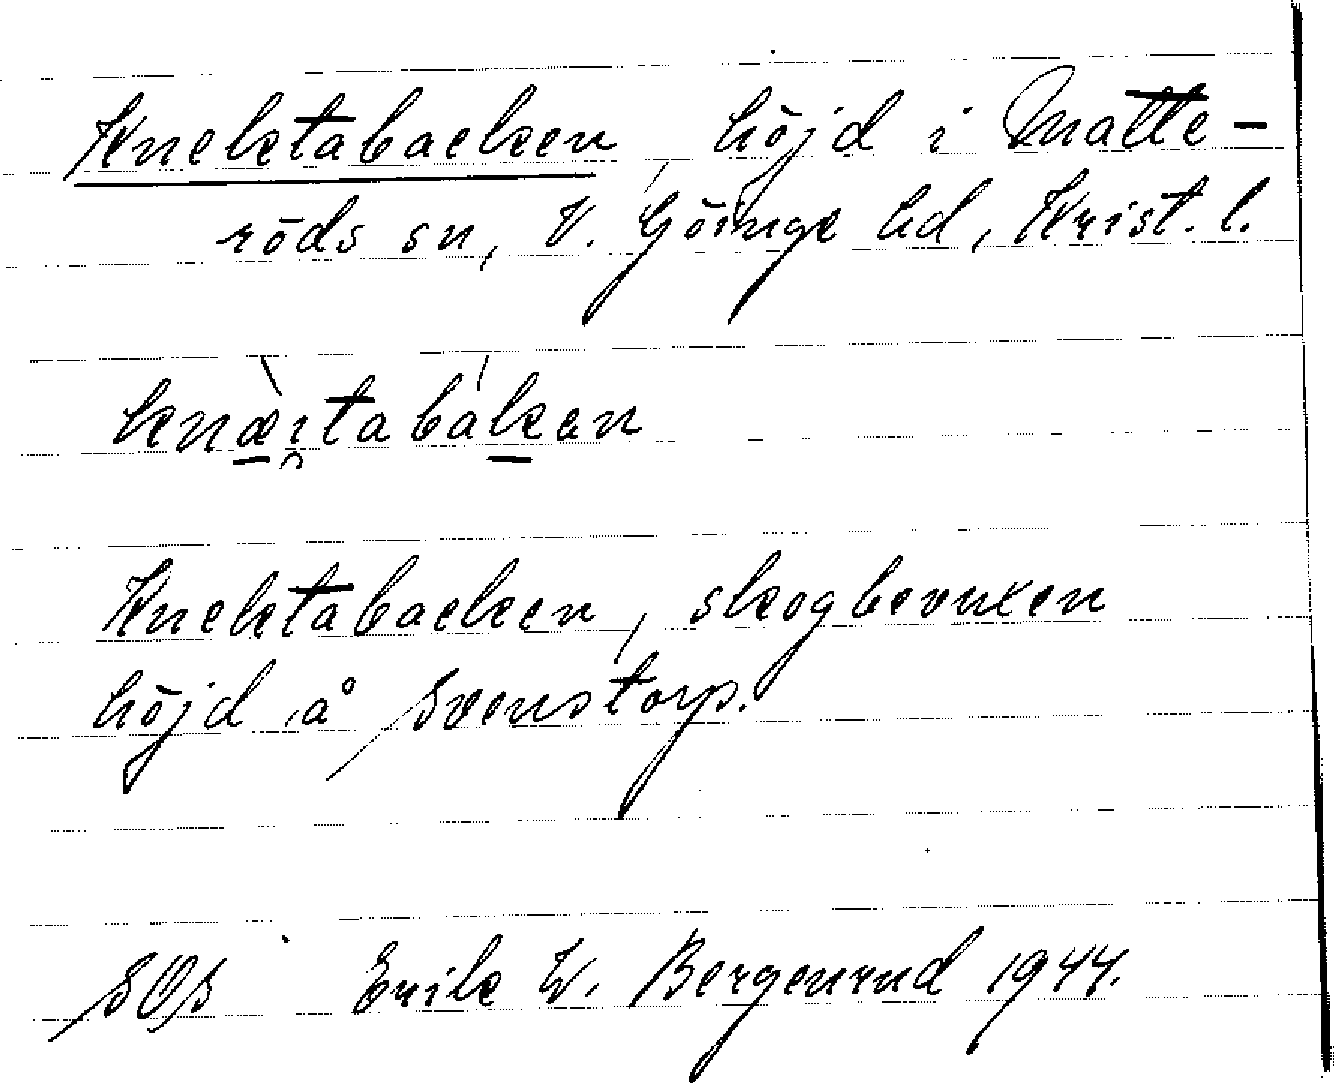 Knektabacken, höjd i Matte-
röds sn, V. Göinge hd, Krist. l.
knæi̯tabakan
Knektabacken, skogbevuxen
höjd å Svenstorp.
SOS Erik W. Bergenrud 1944.